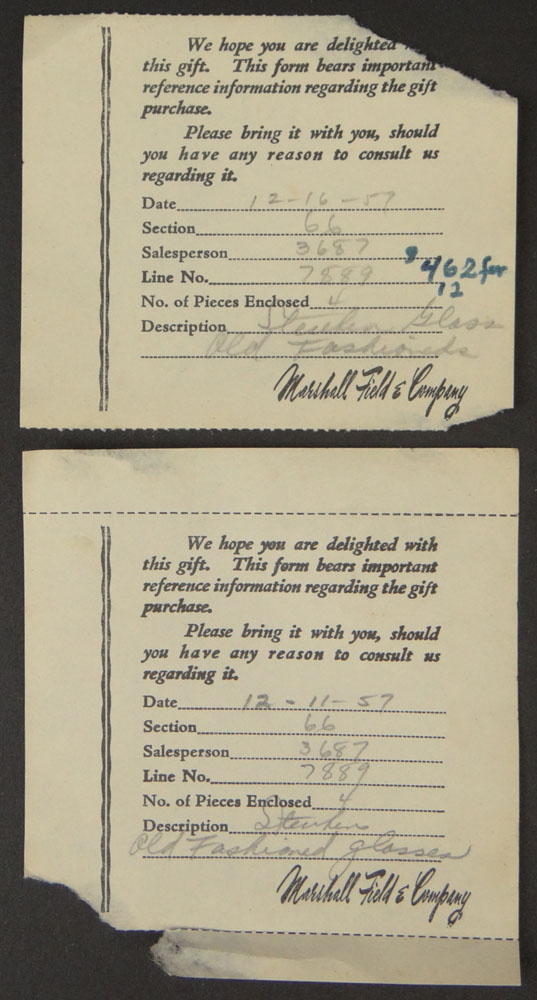 We hope you are delighted
this gift. This form bears important
reference information regarding the gift
purchase.
Please bring it with you, should
you have any reason to consult us
regarding it.
Date 12-16-57
Section 66
Salesperson 3687
Line No. 7889
$462 for
12
No. of Pieces Enclosed 4
Description Steuben Glass
Old Fashioneds
Marshall Field & Company
We hope you are delighted with
this gift. This form bears important
reference information regarding the gift
purchase.
Please bring it with you, should
you have any reason to consult us
regarding it.
Date 12-11-57
Section 66
Salesperson 3687
Line No. 7889
No. of Pieces Enclosed 4
Description Steuben
Old Fashioned glasses
Marshall Field & Company